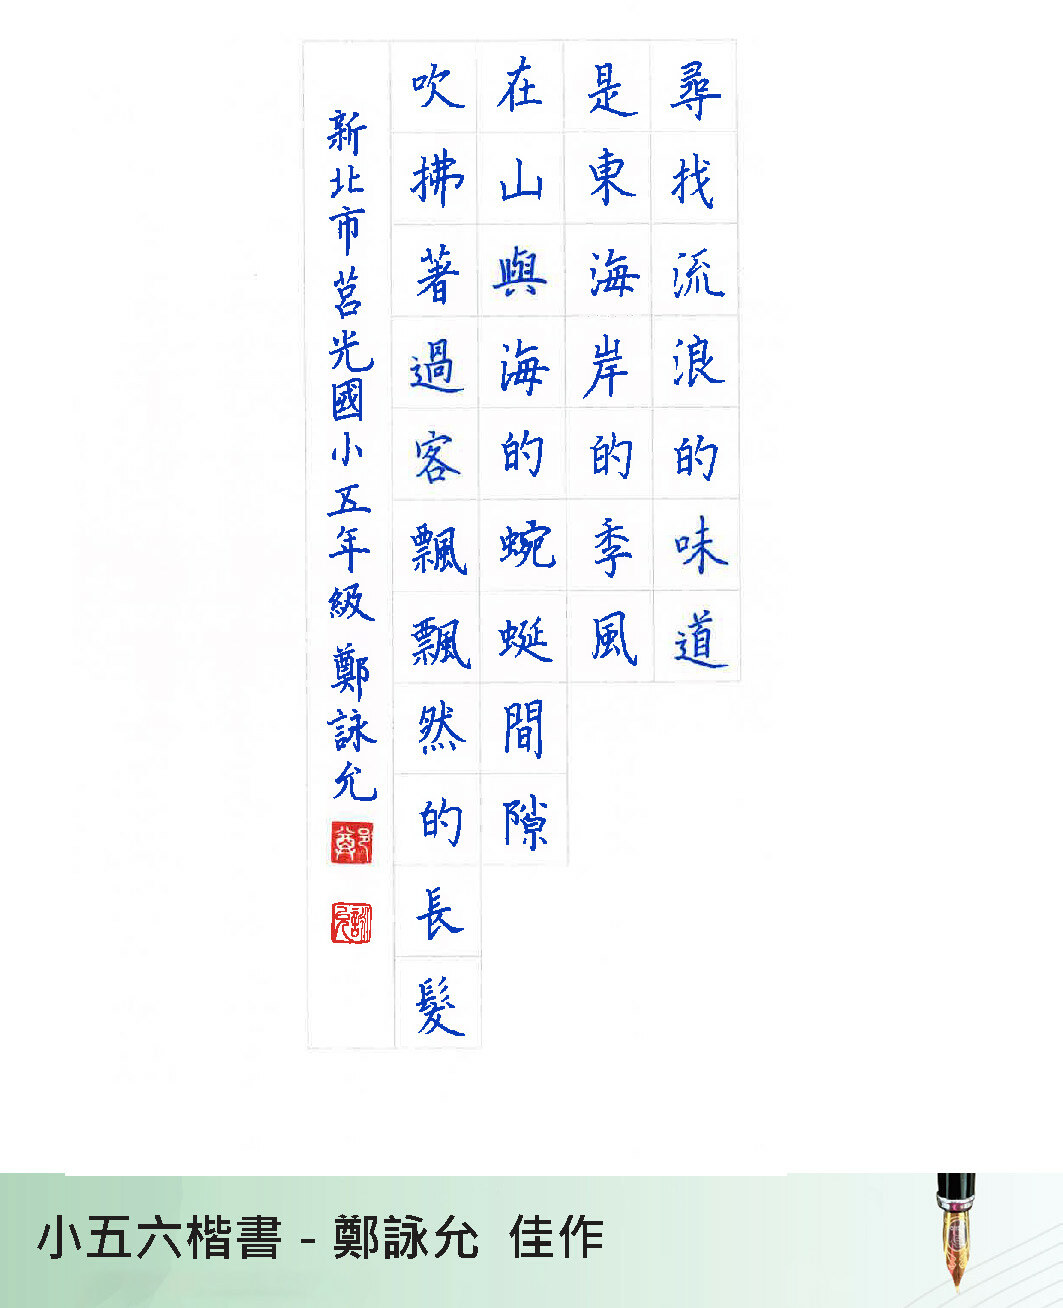 尋找流浪的味道
是東海岸的季風
在山與海的蜿蜒間隙
吹拂著過客飄飄然的長髮
新北市莒光國小五年級 鄭詠允
小五六楷書 - 鄭詠允 佳作